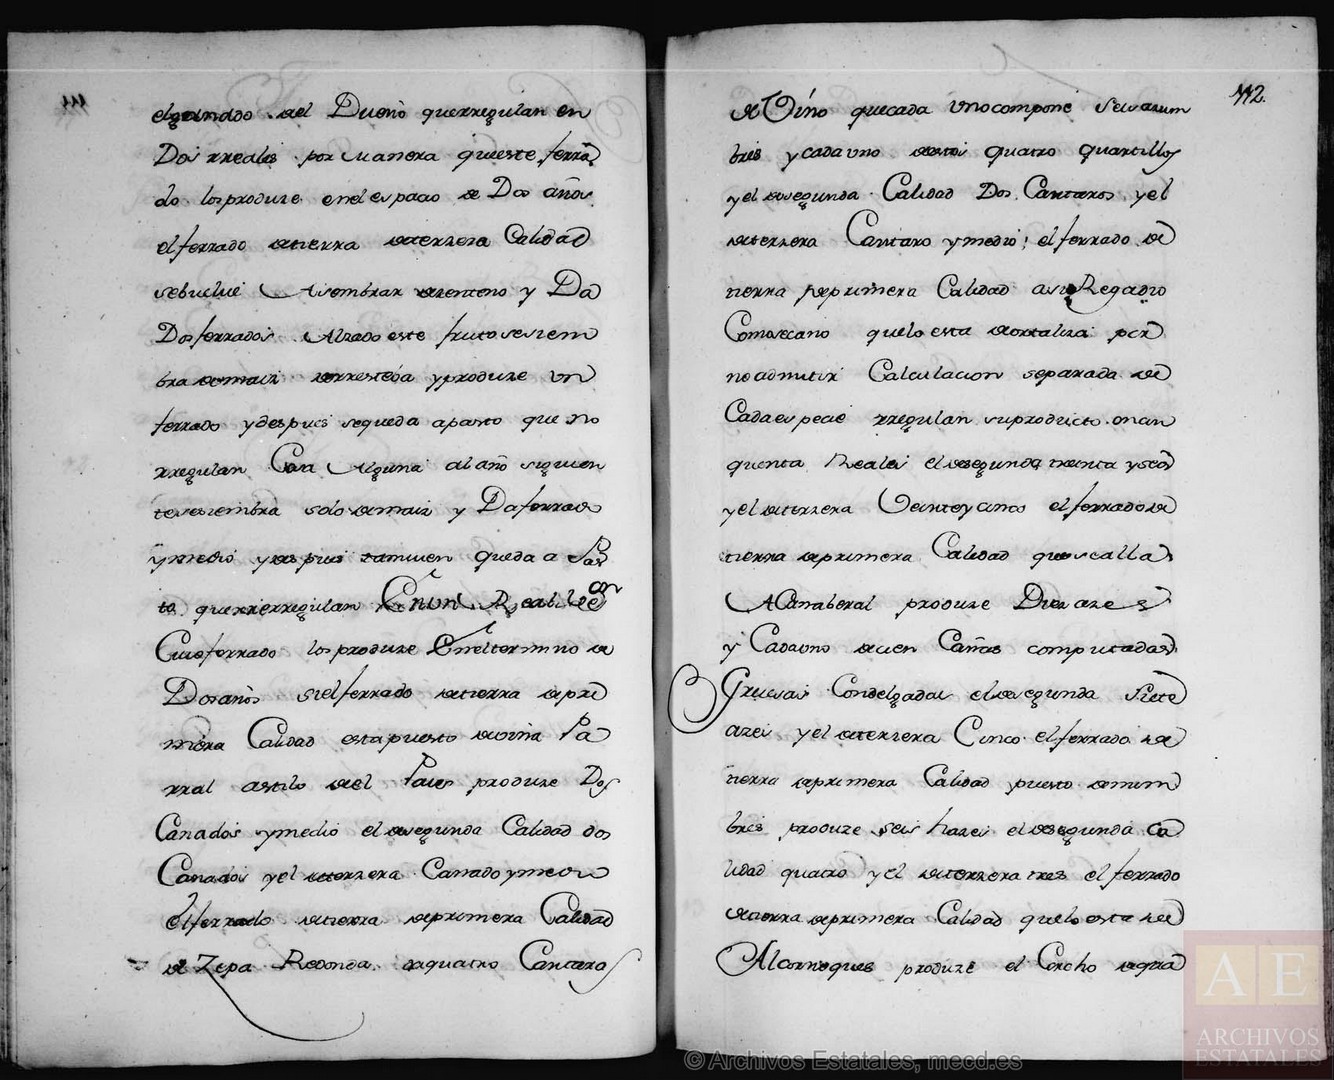 el ganado del Dueño que rregulan en
Dos rreales por manera que este ferra
do los produze en el espacio de Dos años
el ferrado de tierra de terzera Calidad
se buelue A sembrar de zenteno y Da
Dos ferrados Alzado este fruto se siem
bra de maiz de rresteba y produze un
ferrado y despues se queda a pasto que no
rregulan Cosa Alguna al año siguien
te se siembra solo de maiz y Da ferrado
y medio y despues tamuien queda a Pas
to que
Cuio ferrado los produze En el termino de
Dos años si el ferrado de tierra de pri
mera Calidad esta puesto de viña Pa
rral a estilo del Pais produze Dos
Canados y medio el de segunda Calidad dos
Canados y el de terzera Canado y medio
el ferrado de tierra de primera Calidad
de Zepa Redonda da quatro Cantaros
112.
de Vino que cada uno compone seis azum
bres y cada uno de estos quatro quartillos
y el de segunda Calidad Dos Cantaros y el
de terzera Cantaro y medio; el ferrado de
tierra de primera Calidad asi Regadio
Como secano que lo esta de ortaliza por
no admitir Calculacion separada de
Cada especie rregulan su producto en an
quenta Reales el de segunda treinta y seis
y el de terzera Veinte y cinco el ferrado de
tierra de primera Calidad que se alla
A Canaberal produze Diez azes
y Cada uno de cien Cañas computadas
Gruesas Con delgadas el de segunda siete
azes y el de terzera Cinco el ferrado de
tierra de primera Calidad puesto de mim
bres produze seis hazes el de segunda Ca
lidad quatro y el de terzera tres el ferrado
de tierra de primera Calidad que lo esta de
Alcornoques produze el Corcho de
AE
ARCHIVOS
ESTATALES
© Archivos Estatales, mecd.es